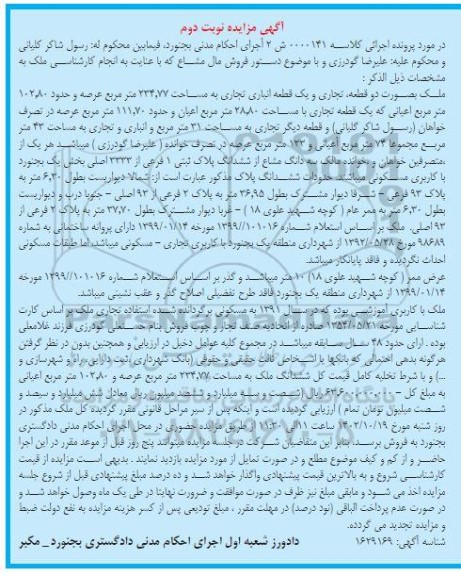 آگهی مزایده نوبت دوم
در مورد پرونده اجرائی کلاسه ۰۰۰۰۱۴۱ ش ۲ أجرای احکام مدنی بجنورد، فیمابین محکوم له: رسول شاکر گلیانی
و محکوم علیه: علیرضا گودرزی و با موضوع دستور فروش مال مشاع که با عنایت به انجام کارشناسی ملک به
مشخصات ذیل الذکر :
ملک بصورت دو قطعه، تجاری و یک قطعه انباری تجاری به مساحت ۲۳۴,۷۷ متر مربع عرصه و حدود ۱۰۲,۸۰
متر مربع اعیانی که یک قطعه تجاری با مساحت ۲۸,۸۰ متر مربع اعیان و حدود ۱۱۱,۷۰ متر مربع عرصه در تصرف
خواهان (رسول شاکر گلیانی) و قطعه دیگر تجاری به مساحت ۳۱ متر مربع و انباری و تجاری به مساحت ۴۳ متر
مربع مجموعا ۷۴ متر مربع اعیانی و ۱۲۳ متر مربع عرصه در تصرف خوانده ( علیرضا گودرزی ) میباشد هر یک از
متصرفین خواهان و خوانده مالک سه دانگ مشاع از ششدانگ پلاک ثبتی ۱ فرعی از ۲۳۳۳ اصلی بخش یک بجنورد
با کاربری مسکونی میباشند. حدودات ششدانگ پلاک مذکور عبارت است از: شمالا دیواریست بطول ۶,۳۰ متر به
پلاک ۹۳ فرعی - شرقا دیوار مشترک بطول ۳۶,۹۵ متر به پلاک ۲ فرعی از ۹۳ اصلی - جنوبا درب و دیواریست
بطول ۶,۳۰ متر به ممر عام ( کوچه شهید علوی ۱۸ ) - غربا دیوار مشترک بطول ۳۷,۷۰ متر به پلاک ۲ فرعی از
۹۳ اصلی. ملک بر اساس استعلام شماره ۱۳۹۹/۱۰۱۰۱۶ مورخه ۱۳۹۹/۰۱/۱۴ دارای پروانه ساختمانی به شماره
۹۸۶۸۹ مورخ ۱۳۹۲/۰۵/۲۸ از شهرداری منطقه یک بجنورد با کاربری تجاری - مسکونی میباشد، اما طبقات مسکونی
احداث نگردیده و فاقد پایانکار میباشد.
عرض ممر ( کوچه شهید علوی ۱۸) ۱۰ متر میباشد و گذر بر اساس استعلام شماره ۱۳۹۹/۱۰۱۰۱۶ مورخه
۱۳۹۹/۰۱/۱۴ از شهرداری منطقه یک بجنورد فاقد طرح تفضیلی اصلاح گذر و عقب نشینی میباشد.
ملک با کاربری آموزشی بوده که در سال ۱۳۹۱ به مسکونی برگردانده شده استفاده تجاری ملک بر اساس کارت
شناسایی مورخه ۱۳۵۳/۰۵/۲۱ صادره از اتحادیه صنف نجار و چوب فروش بنام حسنعلی گودرزی فرزند غلامعلی
بوده . ارای حدود ۴۸ سال سابقه میباشد در مجموع کلیه عوامل دخیل در ارزیابی و همچنین بدون در نظر گرفتن
هرگونه بدهی احتمالی که بانکها یا اشخاص ثالث حقیقی و حقوقی (بانک شهرداری، ثبت دارایی، راه و شهرسازی و
...) و با شرط تخلیه کامل قیمت کل ششدانگ ملک به مساحت ۲۳۴,۷۷ متر مربع عرصه و ۱۰۲,۸۰ متر مربع اعیانی
شصت میلیون تومان تمام ) ارزیابی گردیده است و اینکه پس از سیر مراحل قانونی مقرر گردیده کل ملک مذکور در
روز شنبه مورخ ۱۴۰۲/۱۰/۱۹ ساعت ۱۱ الی ۱۱:۳۰ از طریق مزایده حضوری در محل اجرای احکام مدنی دادگستری
بجنورد به فروش برسد، سایر متقاضیان شرکت در جلسه مزایده میتوانند پنج روز قبل از موعد مقرر در این اجرا
حاضر و از کم و کیف موضوع مطلع و در صورت تمایل از مورد مزایده بازدید نمایند . بدیهی است مزایده از قیمت
کارشناسی شروع و به بالاترین قیمت پیشنهادی واگذار خواهد شد و ده درصد مبلغ پیشنهادی قبل از شروع جلسه
مزایده اخذ می شود و مابقی مبلغ نیز ظرف در صورت موافقت و ضرورت نهایتا در طی یک ماه وصول خواهد شد و
در صورت عدم پرداخت الباقی (نود درصد) در مهلت مقرر ، مبلغ تودیعی پس از کسر هزینه مزایده به نفع دولت ضبط
و مزایده تجدید می گردد.
شناسه آگهی: ۱۶۲۹۱۶۹ دادورز شعبه اول اجرای احکام مدنی دادگستری بجنورد_ مکبر